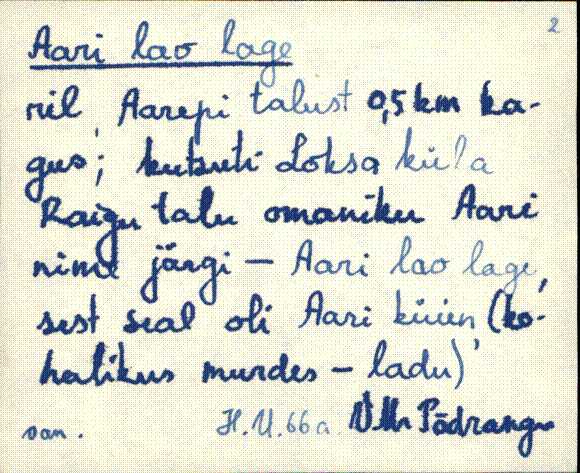 2
Aari lao lage
ril, Aarepi talust 0,5 km ka-
gus; kutsuti Loksa küla
Raigu talu omaniku Aari
nime järgi – Aari lao lage,
sest seal oli Aari küün (ko-
halikus murdes – ladu)
van. H.U. 66 a. V.Mr Põdrangu